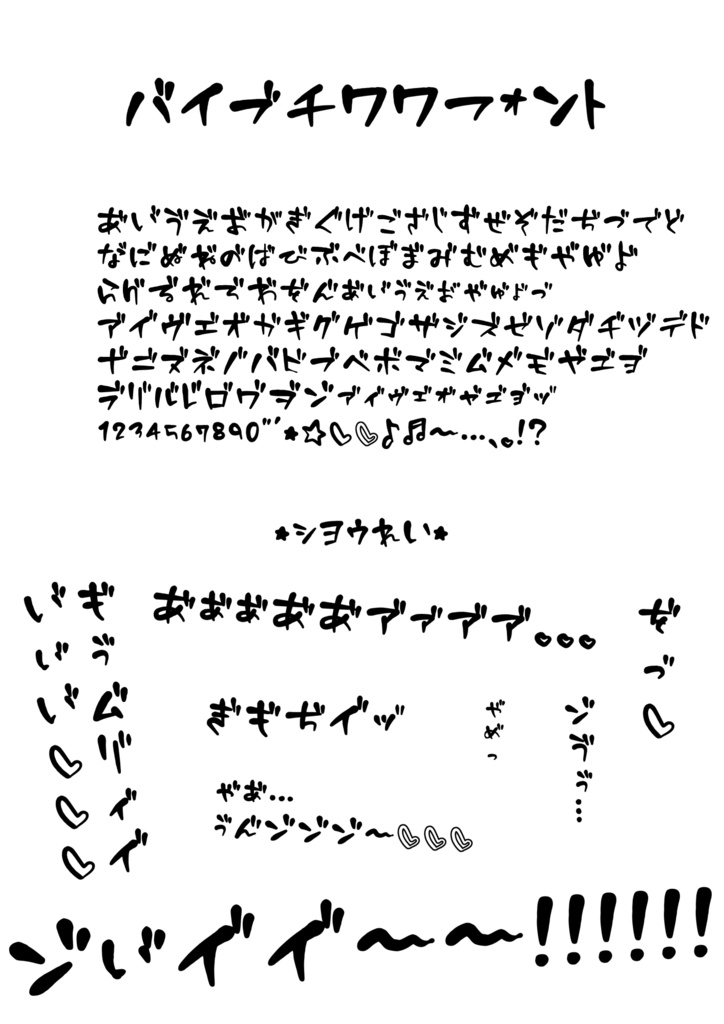 バイブチワワフォント
あ゛い゛ゔえ゛お゛がぎぐげござじずぜぞだぢづでど
な゛に゛ぬ゛ね゛の゛ばびぶべぼま゛み゛む゛め゛も゛や゛ゆ゛よ゛
ら゛り゛る゛れ゛ろ゛わ゛を゛ん゛ぁ゛ぃ゛ぅ゛ぇ゛ぉ゛ゃ゛ゅ゛ょ゛っ゛
ア゛イ゛ヴエ゛オ゛ガギグゲゴザジズゼゾダヂヅデド
ナ゛ニ゛ヌ゛ネ゛ノ゛バビブベボマ゛ミ゛ム゛メ゛モ゛ヤ゛ユ゛ヨ゛
ラ゛リ゛ル゛レ゛ロ゛ワ゛ヲ゛ン゛ァ゛ィ゛ゥ゛ェ゛ォ゛ャ゛ュ゛ョ゛ッ゛
1234567890"'*☆♡♡♪♬～…、。!?
*ショウれい*
い゛い゛い゛♡♡♡
ギゔム゛リ゛ィ゛イ゛
あ゛あ゛ぁ゛あ゛あ゛ア゛ァ゛ァ゛ア゛。。。
ぎも゛ぢイ゛ッ゛
や゛め゛っ
ン゛ヴゔ…
ぜづ♡
や゛あ゛…
ゔん゛ン゛ン゛ン゛～♡♡♡
ン゛い゛イ゛イ゛～～!!!!!!